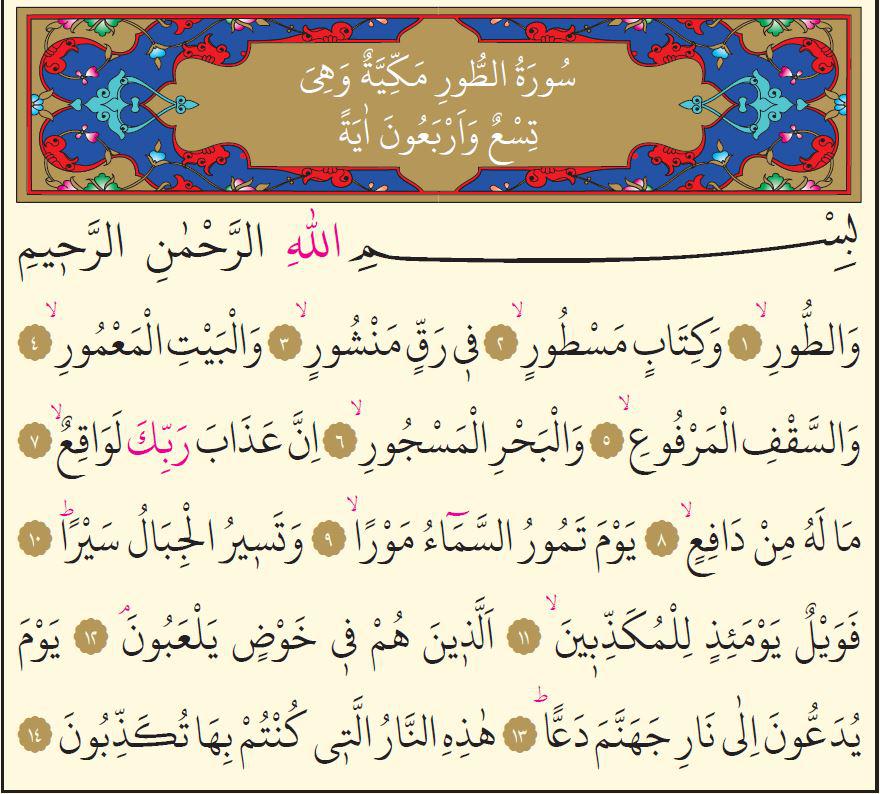 سُورَةُ الطُّورِ مَكِّيَّةٌ وَهِىَ
تِسْعٌ وَاَرْبَعُونَ اٰيَةً
بِسْمِ اللّٰهِ الرَّحْمٰنِ الرَّح۪يمِ
وَالطُّورِۙ ﴿١﴾ وَكِتَابٍ مَسْطُورٍۙ ﴿٢﴾ ف۪ي رَقٍّ مَنْشُورٍۙ ﴿٣﴾ وَالْبَيْتِ الْمَعْمُورِۙ ﴿٤﴾
وَالسَّقْفِ الْمَرْفُوعِۙ ﴿٥﴾ وَالْبَحْرِ الْمَسْجُورِۙ ﴿٦﴾ اِنَّ عَذَابَ رَبِّكَ لَوَاقِعٌۙ ﴿٧﴾
مَا لَهُ مِنْ دَافِعٍۙ ﴿٨﴾ يَوْمَ تَمُورُ السَّمَٓاءُ مَوْرًاۙ ﴿٩﴾ وَتَس۪يرُ الْجِبَالُ سَيْرًاۜ ﴿١٠﴾
فَوَيْلٌ يَوْمَئِذٍ لِلْمُكَذِّب۪ينَۙ ﴿١١﴾ اَلَّذ۪ينَ هُمْ ف۪ي خَوْضٍ يَلْعَبُونَۢ ﴿١٢﴾ يَوْمَ
يُدَعُّونَ اِلٰى نَارِ جَهَنَّمَ دَعًّاۜ ﴿١٣﴾ هٰذِهِ النَّارُ الَّت۪ي كُنْتُمْ بِهَا تُكَذِّبُونَ ﴿١٤﴾